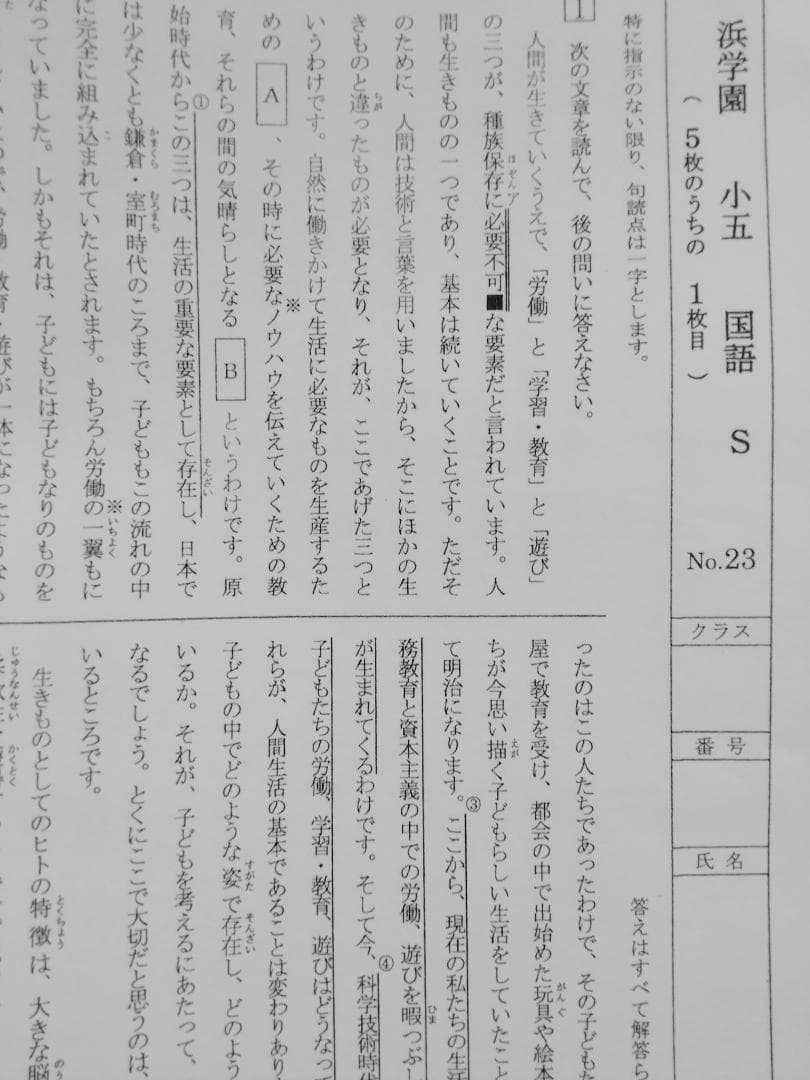 浜学園　小五　国語　S　No.23
（5枚のうちの　1枚目）
クラス
番号
氏名
特に指示のない限り、句読点は一字とします。
答えはすべて解答ら
1　次の文章を読んで、後の問いに答えなさい。
人間が生きていくうえで、「労働」と「学習・教育」と「遊び」
の三つが、種族保存に必要不可■な要素だと言われています。人
間も生きものの一つであり、基本は続いていくことです。ただそ
のために、人間は技術と言葉を用いましたから、そこにほかの生
きものと違ったものが必要となり、それが、ここであげた三つと
いうわけです。自然に働きかけて生活に必要なものを生産するた
めの　A　、その時に必要な※ノウハウを伝えていくための教
育、それらの間の気晴らしとなる　B　というわけです。原
始時代から①この三つは、生活の重要な要素として存在し、日本で
は少なくとも鎌倉・室町時代のころまで、子どももこの流れの中
に完全に組み込まれていたとされます。もちろん労働の※一翼もに
なっていました。しかもそれは、子どもには子どもなりのものを
ったのはこの人たちであったわけで、その子どもた
屋で教育を受け、都会の中で出始めた玩具や絵本
ちが今思い描く子どもらしい生活をしていたこと
て明治になります。③ここから、現在の私たちの生活
務教育と資本主義の中での労働、遊びを暇つぶし
が生まれてくるわけです。そして今、④科学技術時代
子どもたちの労働、学習・教育、遊びはどうなって
れらが、人間生活の基本であることは変わりあり
子どもの中でどのような姿で存在し、どのよう
いるか。それが、子どもを考えるにあたって、
なるでしょう。とくにここで大切だと思うのは、
いるところです。
生きものとしてのヒトの特徴は、大きな脳